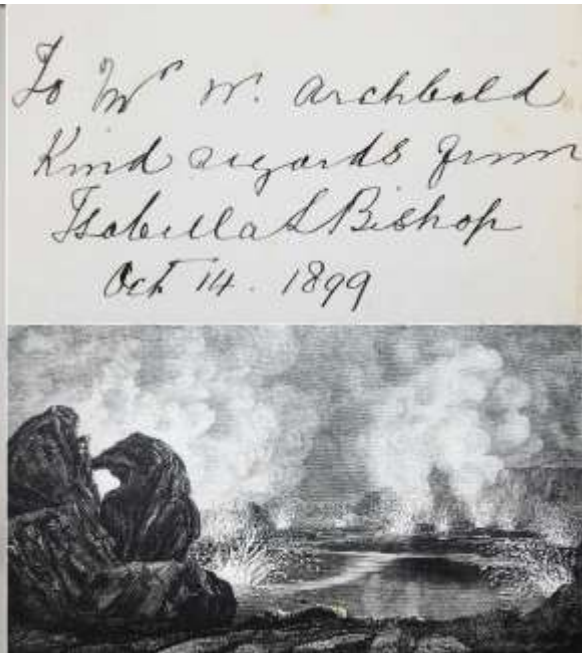 To Mr W. Archbold
Kind regards from
Isabella L Bishop
Oct 14. 1899